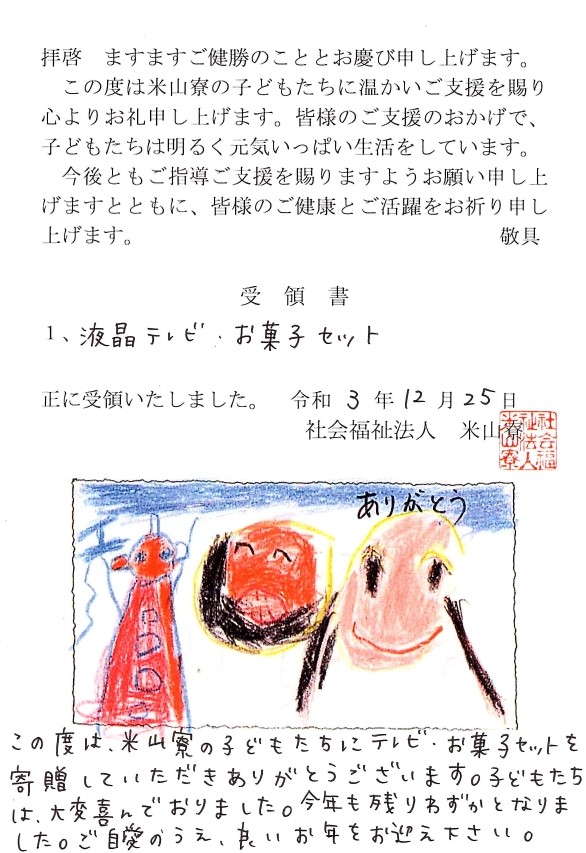 拝啓　ますますご健勝のこととお慶び申し上げます。
　この度は米山寮の子どもたちに温かいご支援を賜り
心よりお礼申し上げます。皆様のご支援のおかげで、
子どもたちは明るく元気いっぱい生活をしています。
　今後ともご指導ご支援を賜りますようお願い申し上
げますとともに、皆様のご健康とご活躍をお祈り申し
上げます。　敬具
受　領　書
1、液晶テレビ・お菓子セット
正に受領いたしました。　令和 3 年 12 月 25 日
社会福祉法人　米山寮
社会福
祉法人
米山寮
ありがとう
この度は、米山寮の子どもたちにテレビ・お菓子セットを
寄贈していただきありがとうございます。子どもたち
は、大変喜んでおりました。今年も残りわずかとなりま
した。ご自愛のうえ、良いお年をお迎え下さい。